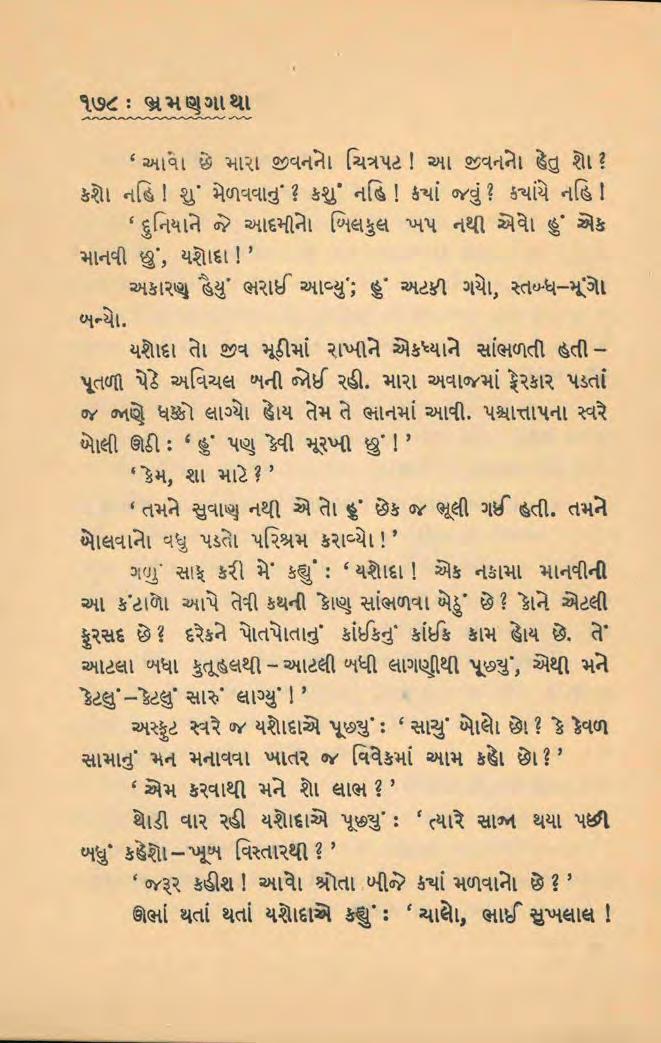 ૧૭૮ : ભ્રમણગાથા
‘ આવો છે મારા જીવનનો ચિત્રપટ ! આ જીવનનો હેતુ શો ?
કશો નહિ ! શું મેળવવાનું ? કશું નહિ ! કયાં જવું ? કયાંયે નહિ !
‘ દુનિયાને જે આદમીનો બિલકુલ ખપ નથી એવો હું એક
માનવી છું, યશોદા ! ’
અકારણ હૈયું ભરાઈ આવ્યું; હું અટકી ગયો, સ્તબ્ધ–મૂંગો
બન્યો.
યશોદા તો જીવ મૂઠીમાં રાખીને એકધ્યાને સાંભળતી હતી –
પૂતળી પેઠે અવિચલ બની જોઈ રહી. મારા અવાજમાં ફેરકાર પડતાં
જ જાણે ધક્કો લાગ્યો હોય તેમ તે ભાનમાં આવી. પશ્ચાત્તાપના સ્વરે
બોલી ઊઠી : ‘ હું પણ કેવી મૂરખી છું ! ’
‘ કેમ, શા માટે ? ’
‘ તમને સુવાણ નથી એ તો હું છેક જ ભૂલી ગઈ હતી. તમને
બોલવાનો વધુ પડતો પરિશ્રમ કરાવ્યો ! ’
ગળું સાફ કરી મેં કહ્યું : ‘ યશોદા ! એક નકામા માનવીની
આ કંટાળો આપે તેવી કથની કોણ સાંભળવા બેઠું છે ? કોને એટલી
ફુરસદ છે ? દરેકને પોતપોતાનું કાંઈકનું કાંઈક કામ હોય છે. તેં
આટલા બધા કુતૂહલથી – આટલી બધી લાગણીથી પૂછ્યું, એથી મને
કેટલું – કેટલું સારું લાગ્યું ! ’
અસ્ફુટ સ્વરે જ યશોદાએ પૂછ્યું : ‘ સાચું બોલો છો ? કે કેવળ
સામાનું મન મનાવવા ખાતર જ વિવેકમાં આમ કહો છો ? ’
‘ એમ કરવાથી મને શો લાભ ? ’
થોડી વાર રહી યશોદાએ પૂછ્યું : ‘ ત્યારે સાજા થયા પછી
બધું કહેશો – ખૂબ વિસ્તારથી ? ’
‘ જરૂર કહીશ ! આવો શ્રોતા બીજે કયાં મળવાનો છે ? ’
ઊભાં થતાં થતાં યશોદાએ કહ્યું : ‘ ચાલો, ભાઈ સુખલાલ !